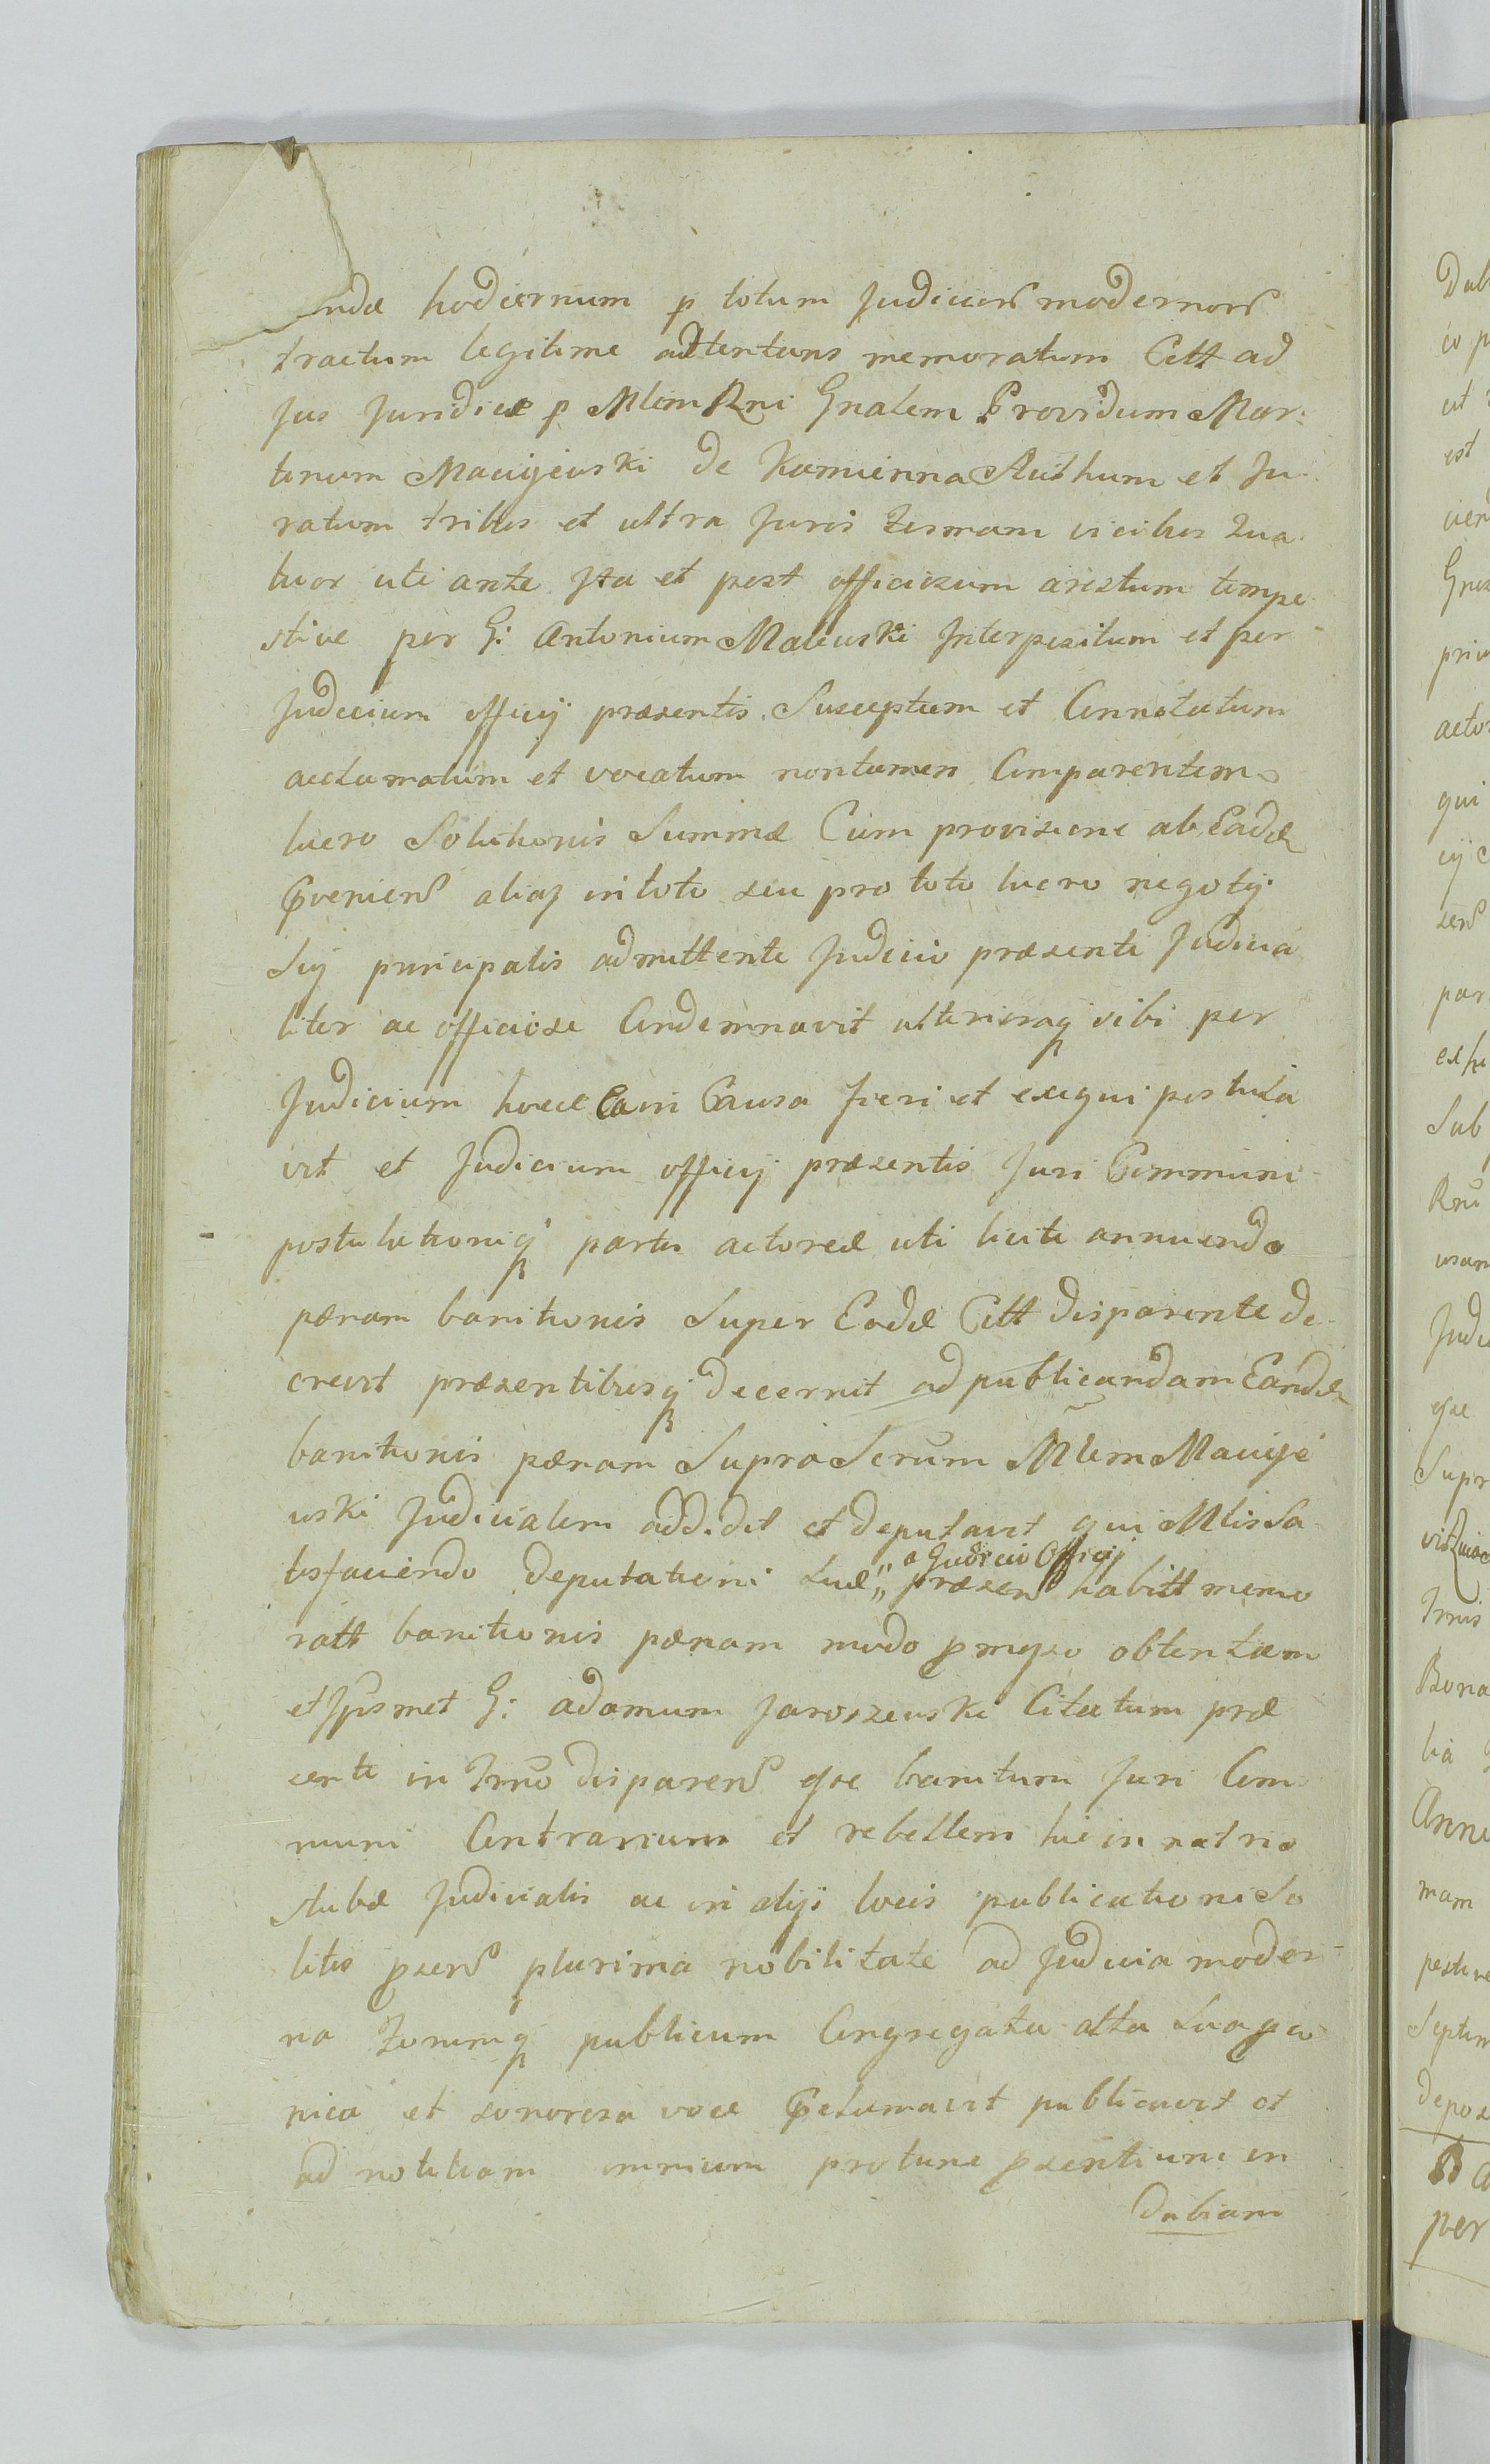 ndæ hodiernum p totum Judicior modernor
tractum legitime attentans memoratum Citt ad
Jus Juridice p Mlem Rni Gnalem Providum Mar:
tinum Macijewski de Kamienna Authum et Ju
ratum tribus et ultra Juris formam vicibus Qua
tuor uti ante Jta et post officiosum arestum tempe
stive per G: Antonium Malewski Interpositum et per
Judicium officij præsentis Susceptum et Connotatum
acclamatum et vocatum nontamen Comparentem
lucro Solutionis Summæ Cum provisione ab Eadē
pvenien aliaq in toto seu pro toto lucro negotij
Sui principalis admittente Judicio præsenti Judicia
liter ac officiose Condemnavit ulterioraq sibi per
Judicium hocce Ea in Causa fieri et exequi postula
vit et Judicium officij præsentis Juri Communi
postulationiq partis actoreæ uti licite annuendo
pænam banitionis Super Eodē Citt disparente de
crevit præsentibusq decernit ad publicandam Eandē
banitionis pænam Supra Scrūm Mlem Macije
wski Judicialem addidit et deputavit qui Mlis Sa
tisfaciendo deputationi suæ a Judicio Officij præsen habitt memo
ratt banitionis pænam modo pmisso obtentam
et Jpsmet G: Adamum Jaroszewski Citatum præ
senti in Trno disparen esse banitum Juri Com
muni Contrarium et rebellem hic in atrio
stubæ Judicialis ac in alijs locis publicationi So
litis psen plurima nobilitate ad Judicia moder
na forumq publicum Congregata alta sua
nica et sonorosa voce pclamavit publicavit et
ad notitiam omnium protunc psentium in
dubiam